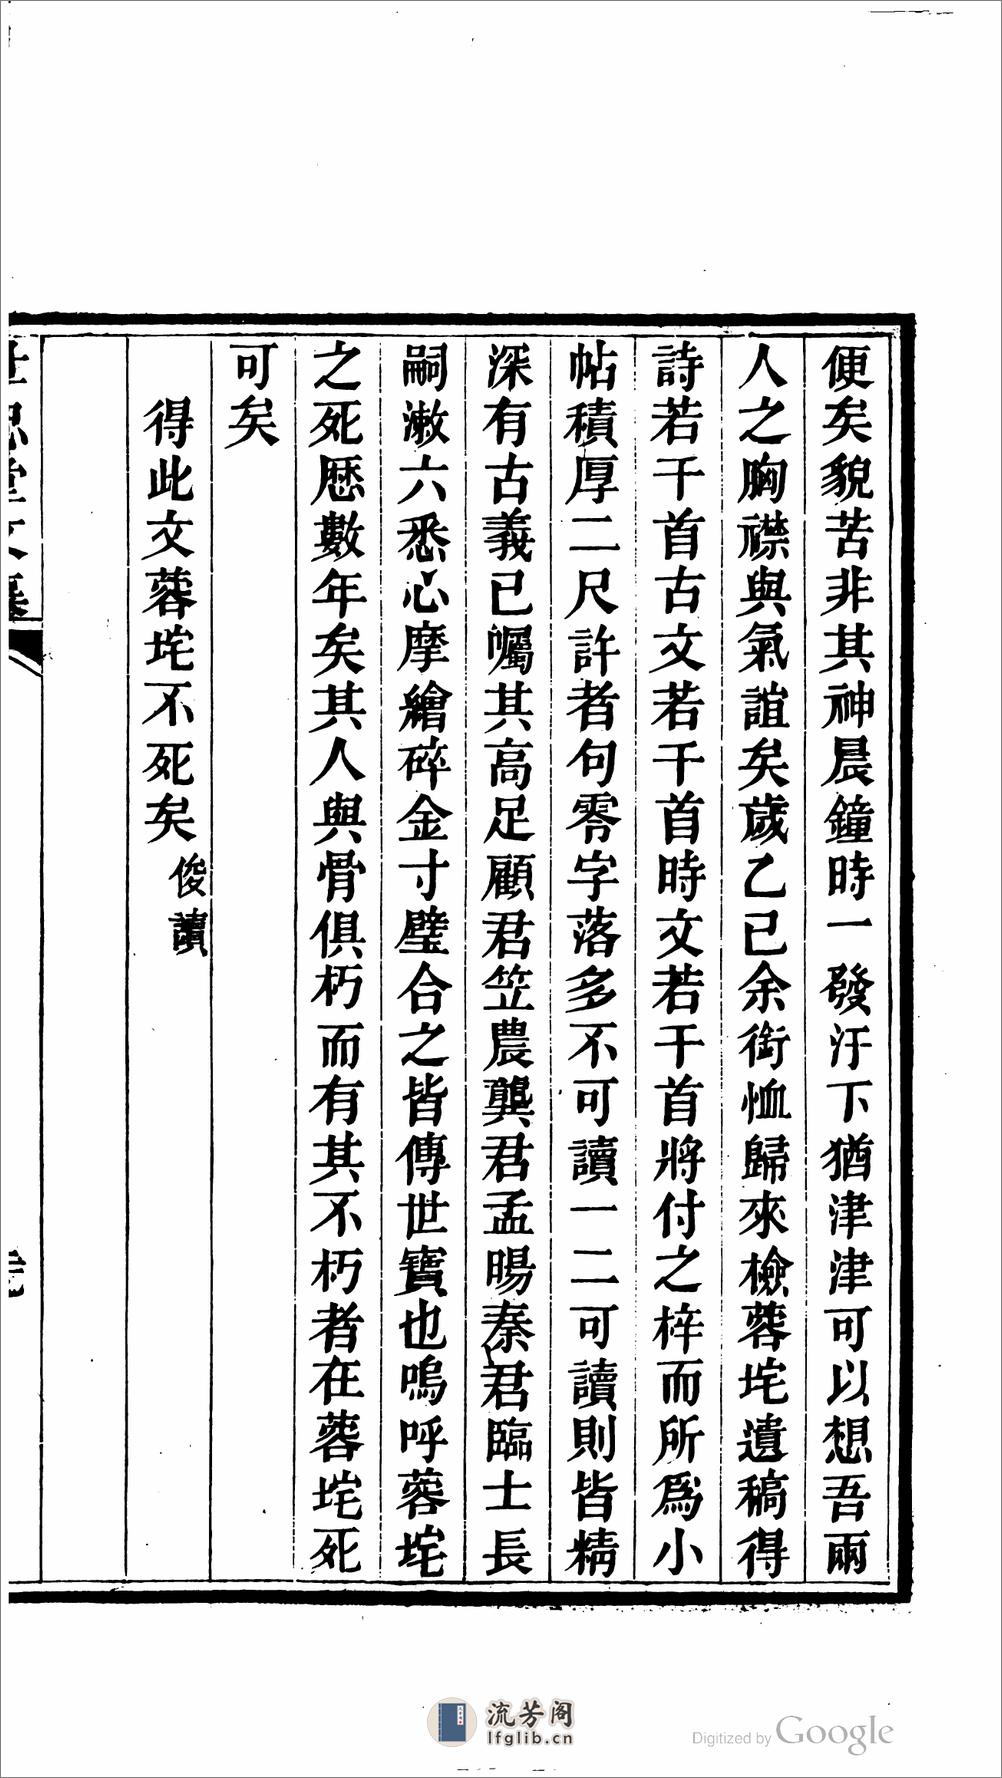 便矣貌苦非其神晨鐘時一發汙下猶津津可以想吾兩
人之胸襟與氣誼矣歲乙巳余銜恤歸來檢蓉垞遺稿得
詩若干首古文若干首時文若干首將付之梓而所爲小
帖積厚二尺許者句零字落多不可讀一二可讀則皆精
深有古義已囑其高足顧君笠農龔君孟暘秦君臨士長
嗣漱六悉心摩繪碎金寸璧合之皆傳世寶也嗚呼蓉垞
之死歷數年矣其人與骨俱朽而有其不朽者在蓉垞死
可矣
得此文蓉垞不死矣 俊讀
流芳阁
lfglib.cn
Digitized by Google